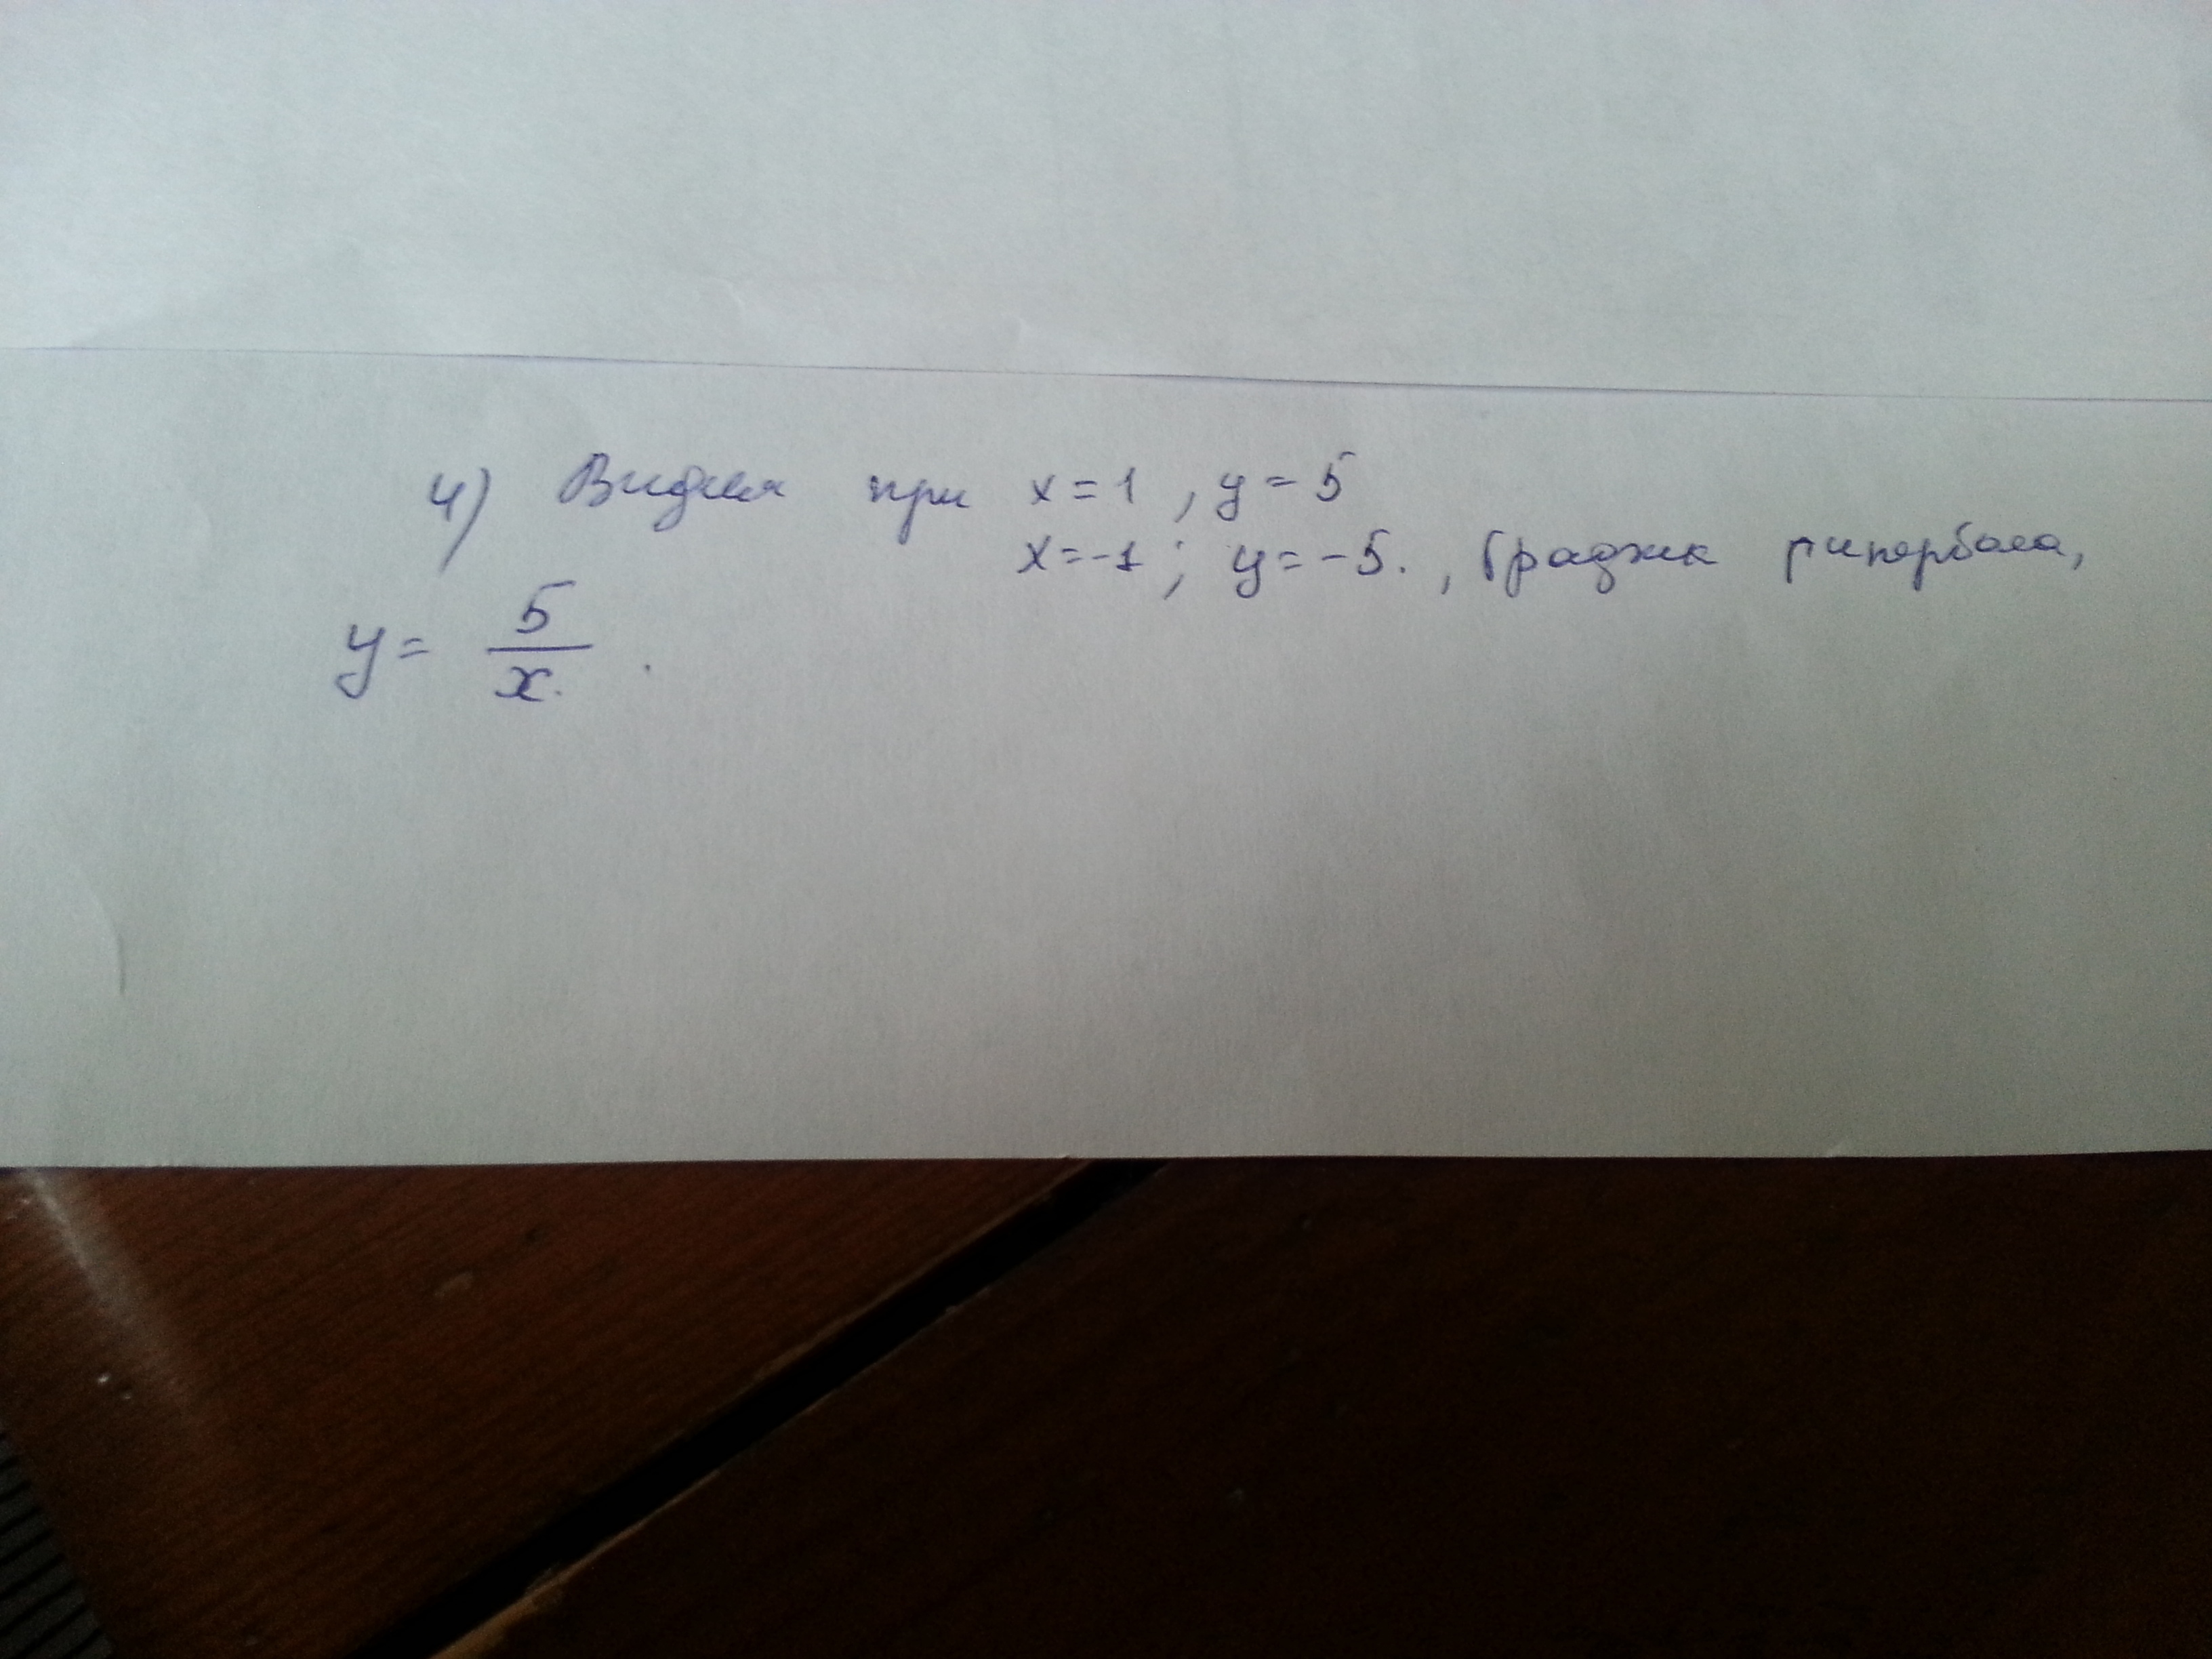 4) Видим при x=1, y=5
x=-1; y=-5. , График гипербола,
y= 5/x.